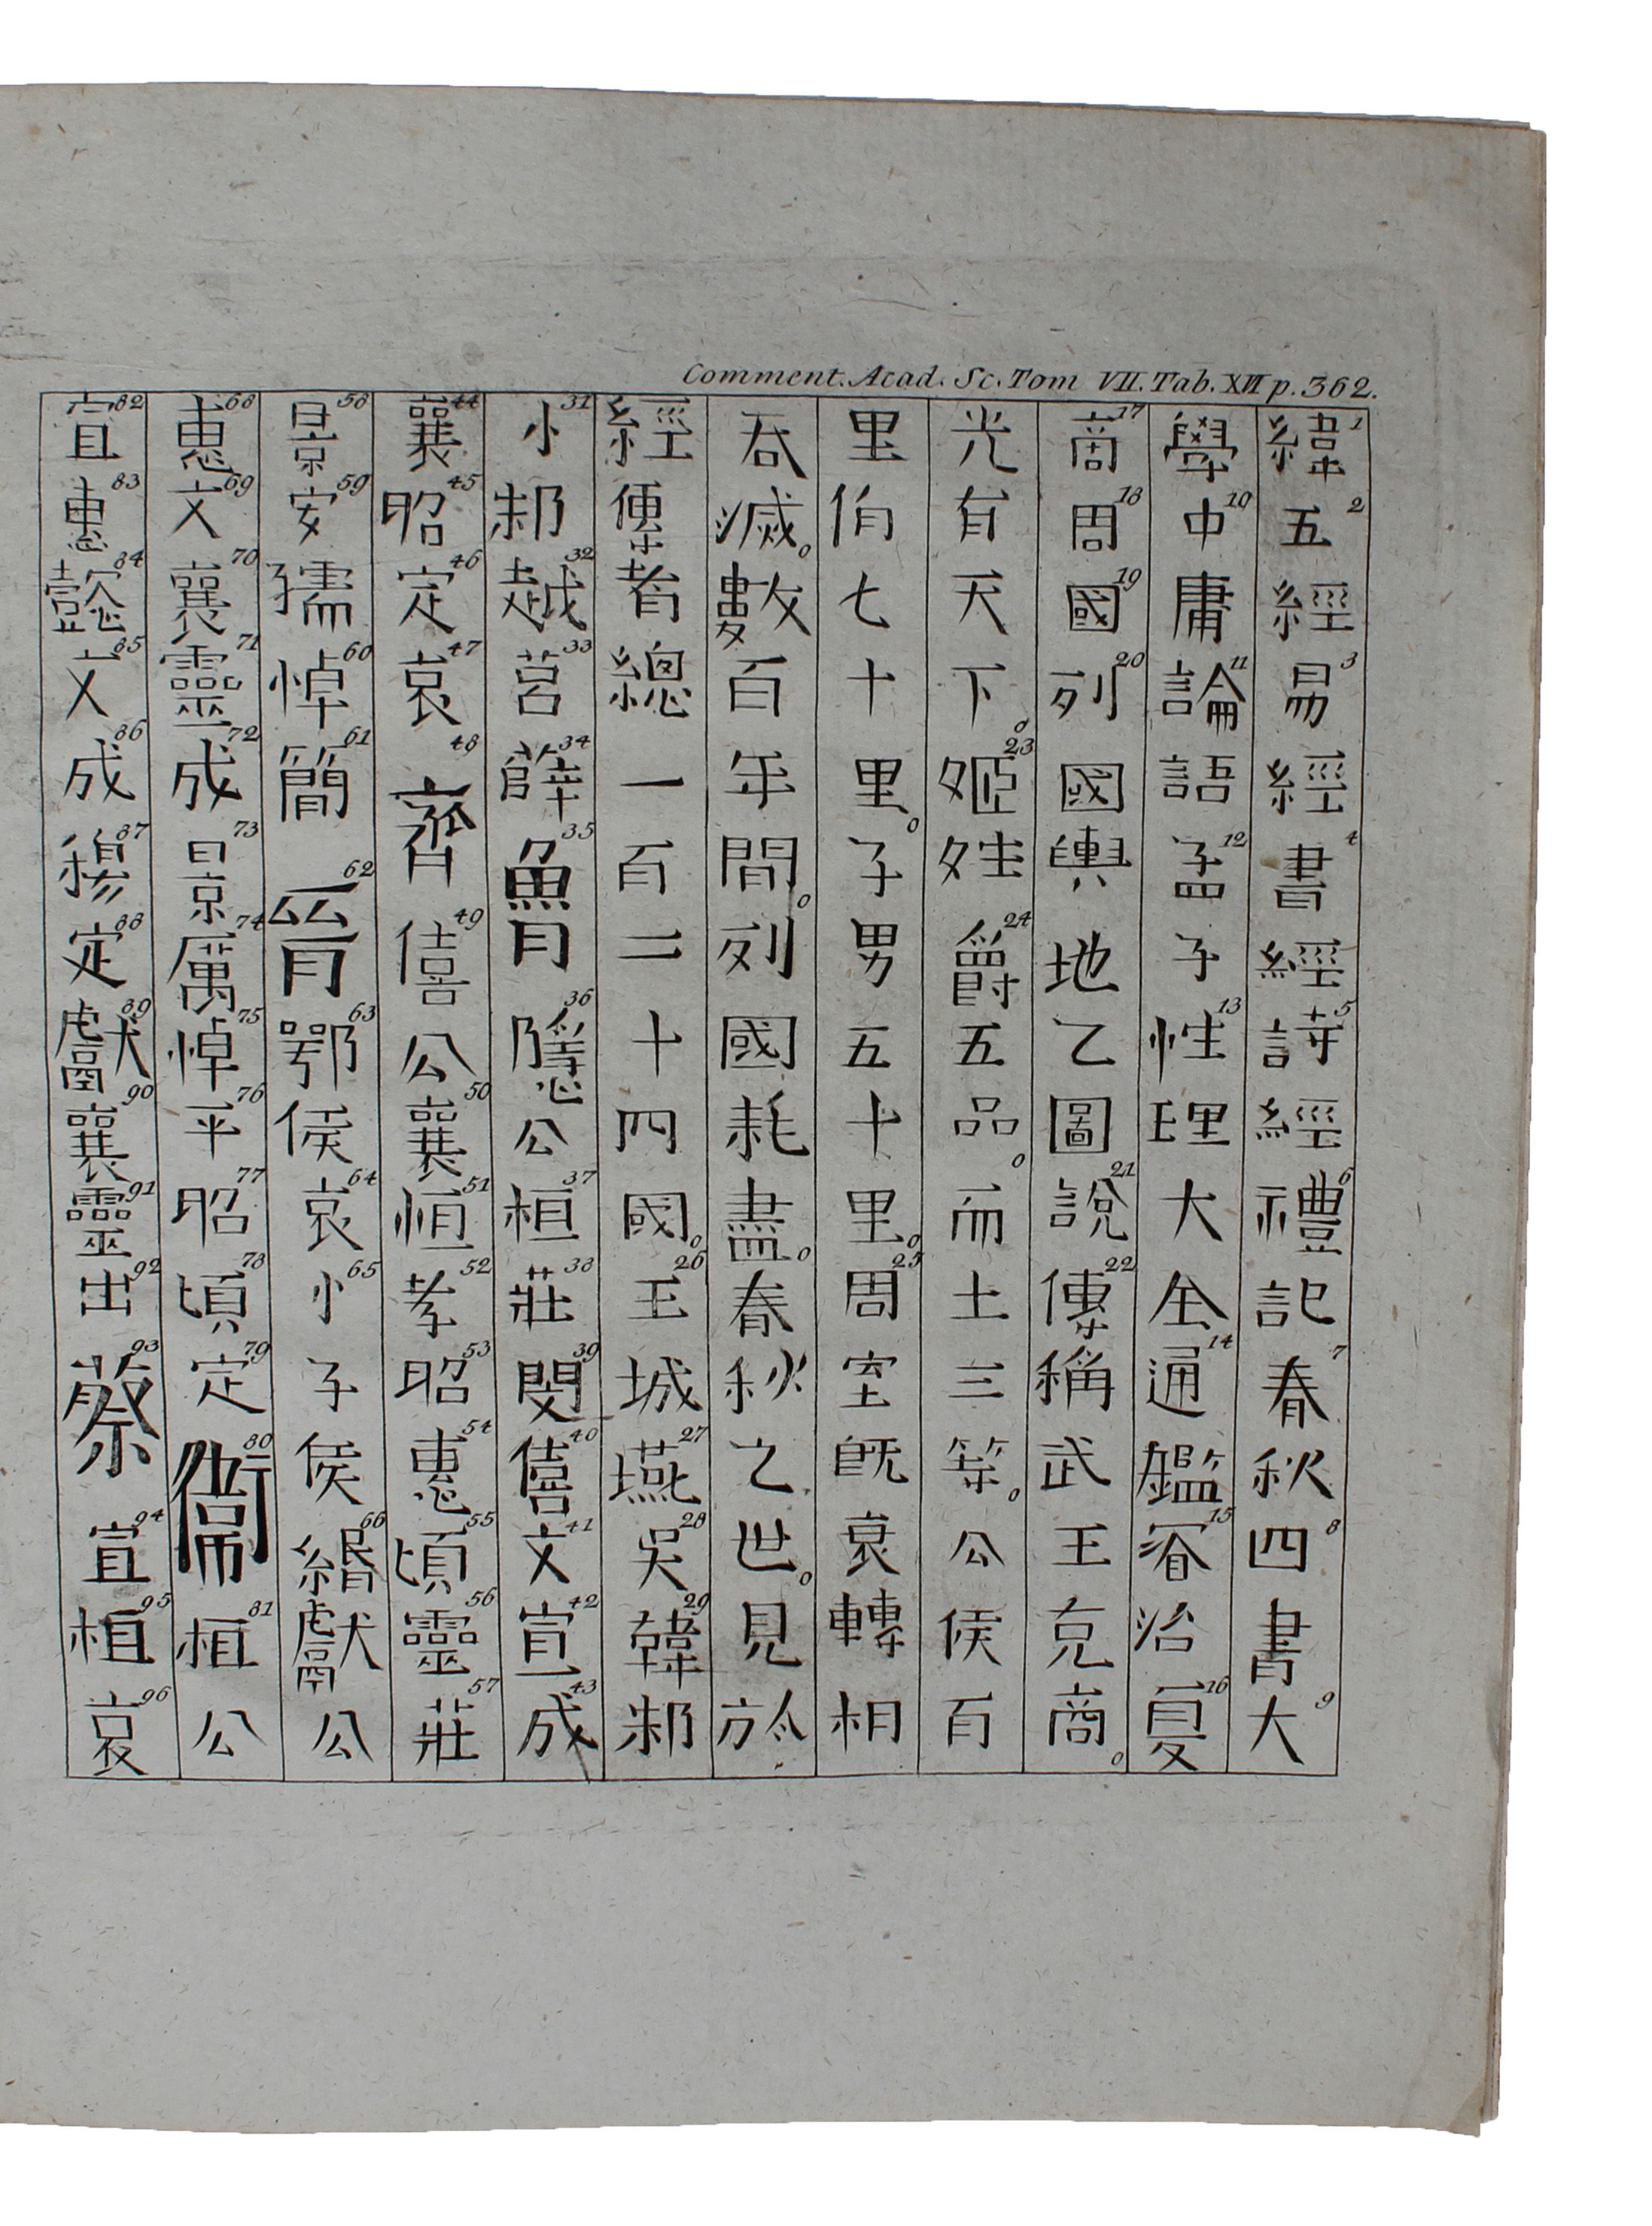 Comment. Acad. Sc. Tom VII. Tab. XVI p. 362.
緯1五2經易3經書4經詩5經禮6記春7秋四8書大9
學中10庸論11語孟12子性13理大全通14鑑15治夏16
商17周18國19列20國輿地乙圖說21傳22稱武王克商。
光有天下。姬23姓爵24五品。而土三等。公侯百
里伯七十里。子男五十里。周25室既衰轉相
吞滅。數百年間。列國耗盡。春秋之世。見於
經傳者總一百二十四國。王26城燕27吳28韓29邾
小31邾越32莒33薛34魯35隱36公桓37莊38閔39僖40文41宣42成43
襄44昭45定46哀47齊48僖49公襄50恒51孝52昭53惠54頃55靈56莊57
景58安59孺悼60簡61晉62鄂63侯哀64小65子侯緡66獻公
惠68文69襄70靈71成72景73厲74悼75平76昭77頃78定79衛80桓81公
宣82惠83懿84文85成86穆87定88獻89襄90靈91出92蔡93宣94桓95哀96